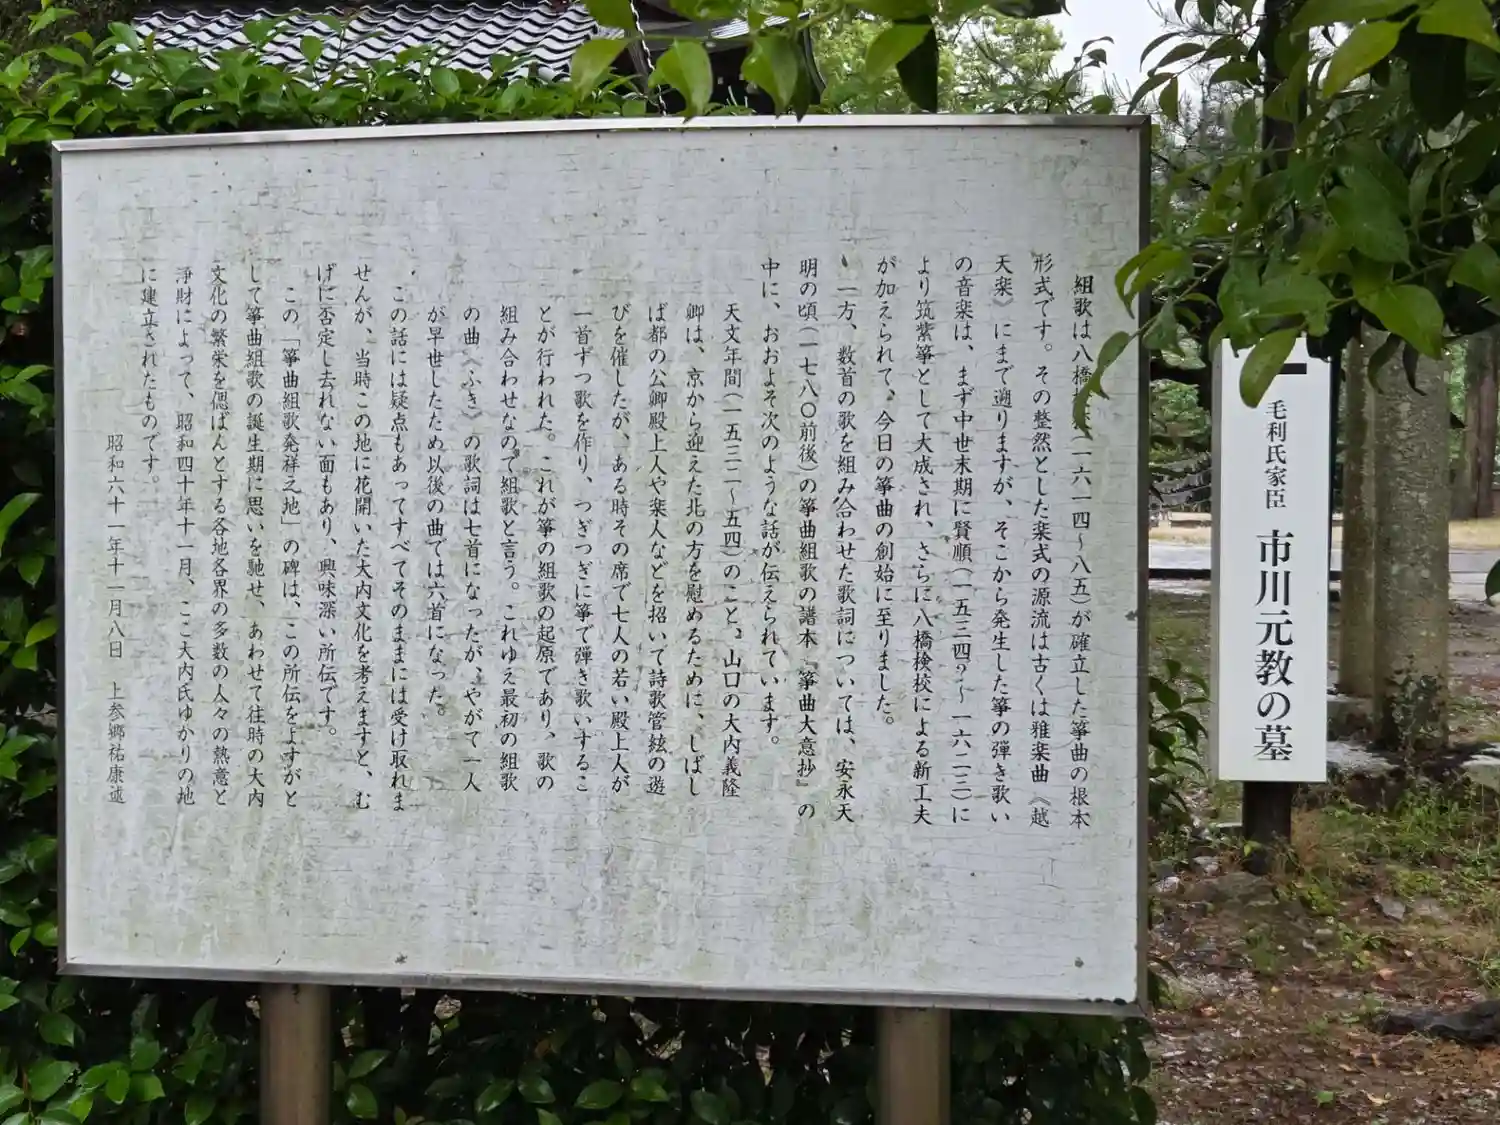 組歌は八橋（一六一四～八五）が確立した箏曲の根本
形式です。その整然とした楽式の源流は古くは雅楽曲《越
天楽》にまで遡りますが、そこから発生した箏の弾き歌い
の音楽は、まず中世末期に賢順（一五三四？～一六二三）に
より筑紫箏として大成され、さらに八橋検校による新工夫
が加えられて、今日の箏曲の創始に至りました。
一方、数首の歌を組み合わせた歌詞については、安永天
明の頃（一七八〇前後）の箏曲組歌の譜本『箏曲大意抄』の
中に、おおよそ次のような話が伝えられています。
天文年間（一五三二～五四）のこと、山口の大内義隆
卿は、京から迎えた北の方を慰めるために、しばし
ば都の公卿殿上人や楽人などを招いて詩歌管絃の遊
びを催したが、ある時その席で七人の若い殿上人が
一首ずつ歌を作り、つぎつぎに箏で弾き歌いするこ
とが行われた。これが箏の組歌の起原であり、歌の
組み合わせなので組歌と言う。これゆえ最初の組歌
の曲〈ふき〉の歌詞は七首になったが、やがて一人
が早世したため以後の曲では六首になった。
この話には疑点もあってすべてそのままには受け取れま
せんが、当時この地に花開いた大内文化を考えますと、む
げに否定し去れない面もあり、興味深い所伝です。
この、「箏曲組歌発祥之地」の碑は、この所伝をよすがと
して箏曲組歌の誕生期に思いを馳せ、あわせて往時の大内
文化の繁栄を偲ばんとする各地各界の多数の人々の熱意と
浄財によって、昭和四十年十一月、ここ大内氏ゆかりの地
に建立されたものです。
昭和六十一年十一月八日　上参郷祐康誌
毛利氏家臣　市川元教の墓